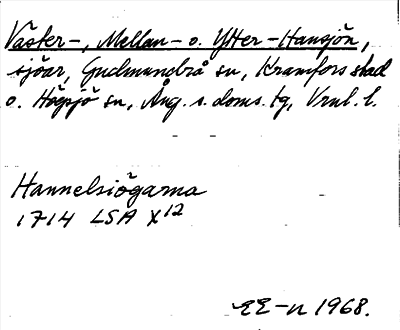 Väster-, Mellan- o. Ytter-Hansjön,
sjöar, Gudmundrå sn, Kramfors stad
o. Högsjö sn, Ång. s. doms. tg, Vrnl. l.
Hannelsiögarna
1714 LSA X12
EE-n 1968.